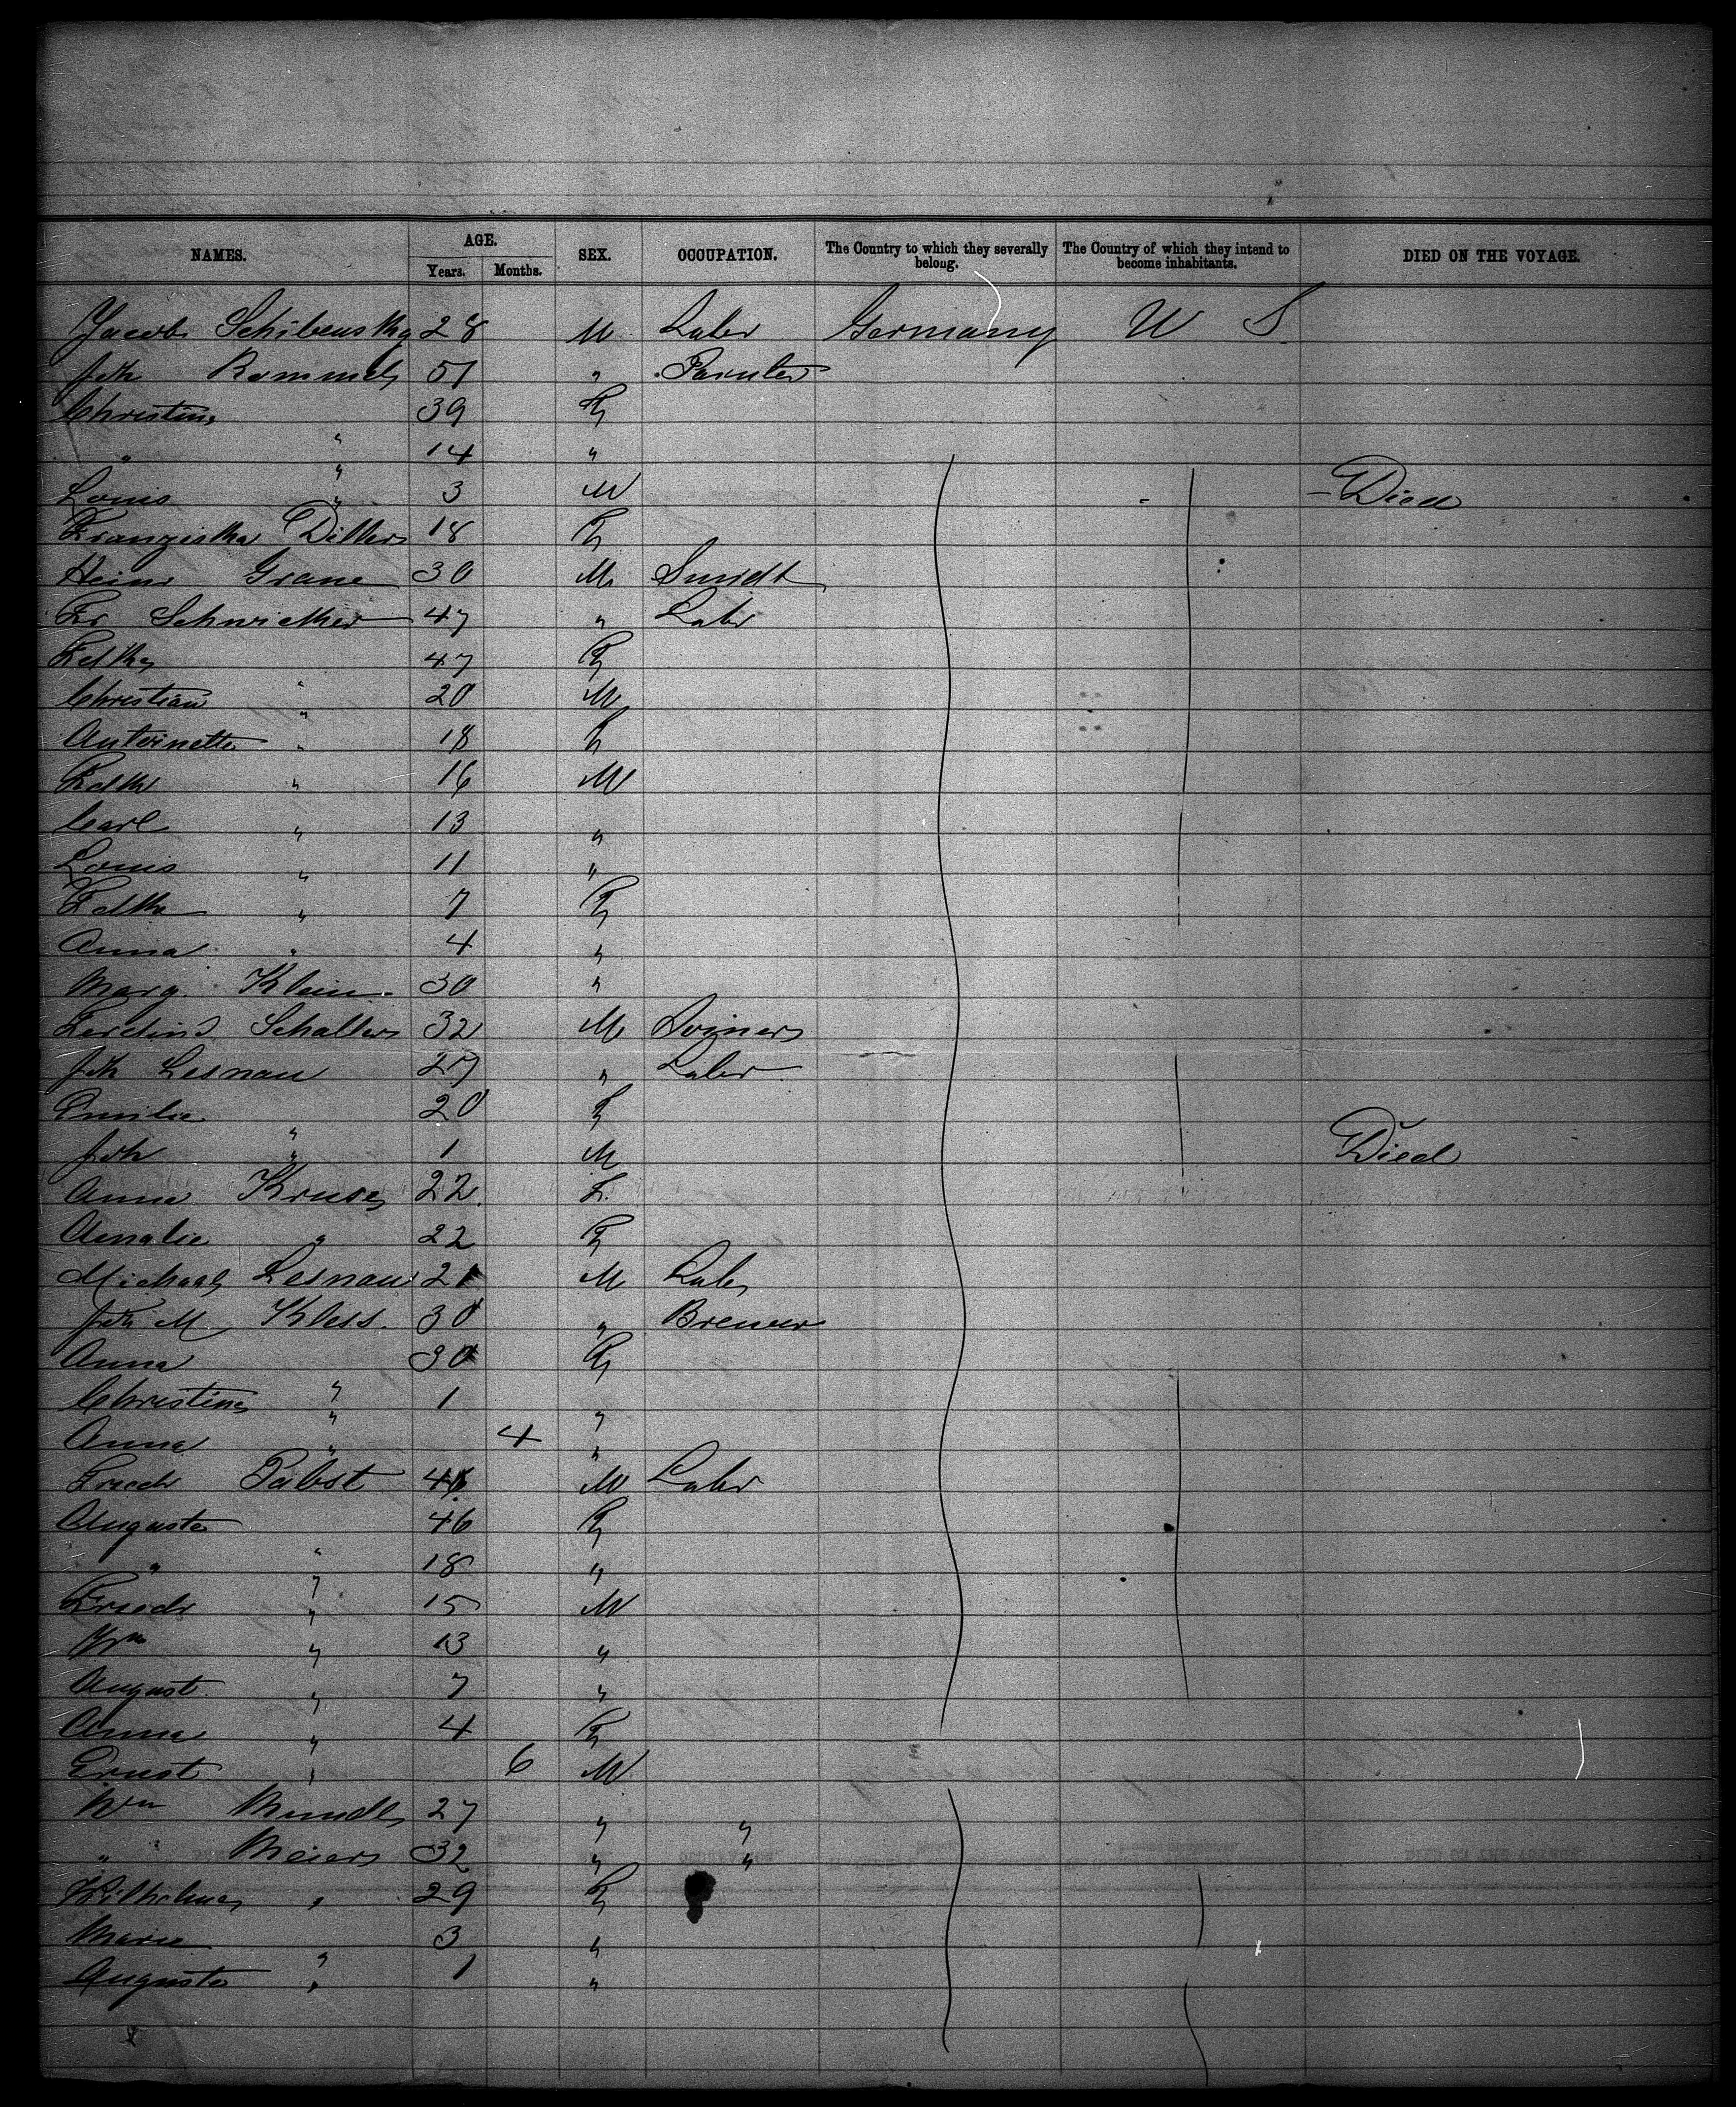 NAMES. AGE. SEX. OCCUPATION. The Country to which they severally belong. The Country of which they intend to become inhabitants. DIED ON THE VOYAGE.
Years. Months.
Jacob 28 M Labr Germany U S
Joh Rommel 51 " Painter
Christine 39 F
" " 14 "
Louis " 3 M Died
Franziska 18 F
Heinr Grane 30 M Smidt
Fr 47 " Labr
47 F
Christian " 20 M
Antoinette " 18 F
" 16 M
Carl " 13 "
Louis " 11 "
" 7 F
Anna " 4 "
Marg. Klein 30 "
Ferdind Schaller 32 M Joiner
Joh Lesnau 27 " Labr
Emilie " 20 F
Joh " 1 M Died
Anna Kruse 22 F
Amalie " 22 F
Michael Lesnau 21 M Labr
Joh M Kless 30 " Brewer
Anna 30 F
Christine " 1 "
Anna " 4 "
Friedr Pabst 46 M Labr
Auguste 46 F
" " 18 "
Friedr " 15 M
Wm " 13 "
August " 7 "
Anna " 4 F
Ernst " 6 M
Wm 27 " "
" Meier 32 " "
Wilhelmine " 29 F
Marie " 3 "
Auguste " 1 "